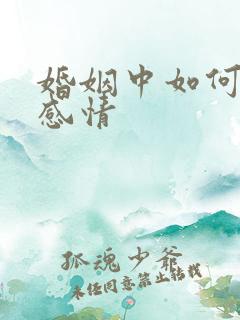 婚姻中如何
感情
孤魂少爷
未经同意禁止转载